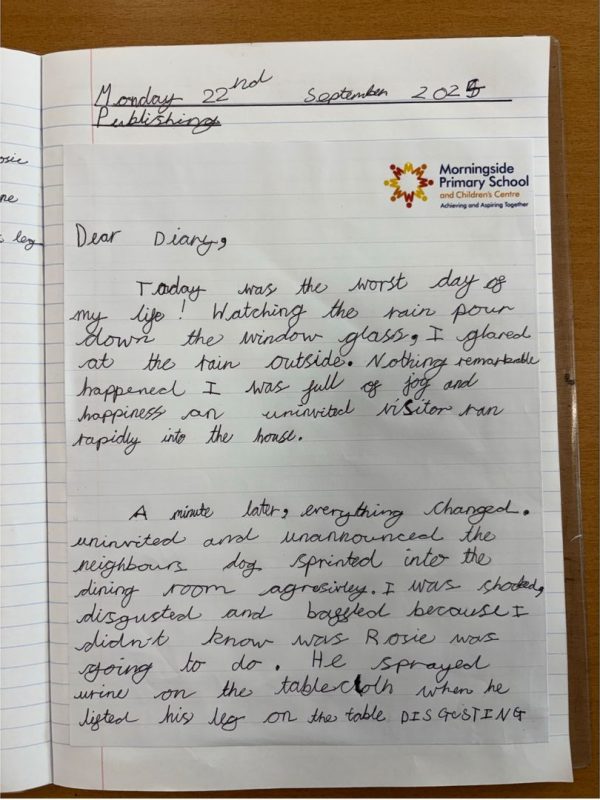 Monday 22nd September 2025
Publishing
Morningside
Primary School
and Children's Centre
Achieving and Aspiring Together
osie
ne
leg
Dear Diary,
Today was the worst day of
my life! Watching the rain pour
down the window glass, I glared
at the rain outside. Nothing remarkable
happened I was full of joy and
happiness an uninvited visitor ran
rapidly into the house.
A minute later, everything changed.
uninvited and unannounced the
neighbours dog sprinted into the
dining room agresivley. I was shocked,
disgusted and baffled because I
didn't know was Rosie was
going to do. He sprayed
urine on the tablecloth when he
lifted his leg on the table DISGUSTING